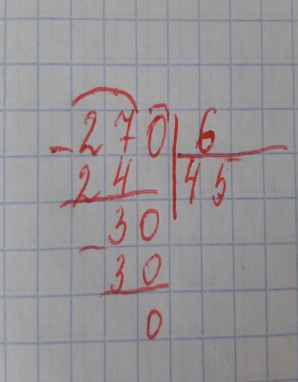 - 270 | 6
24 | 45
- 30
30
0